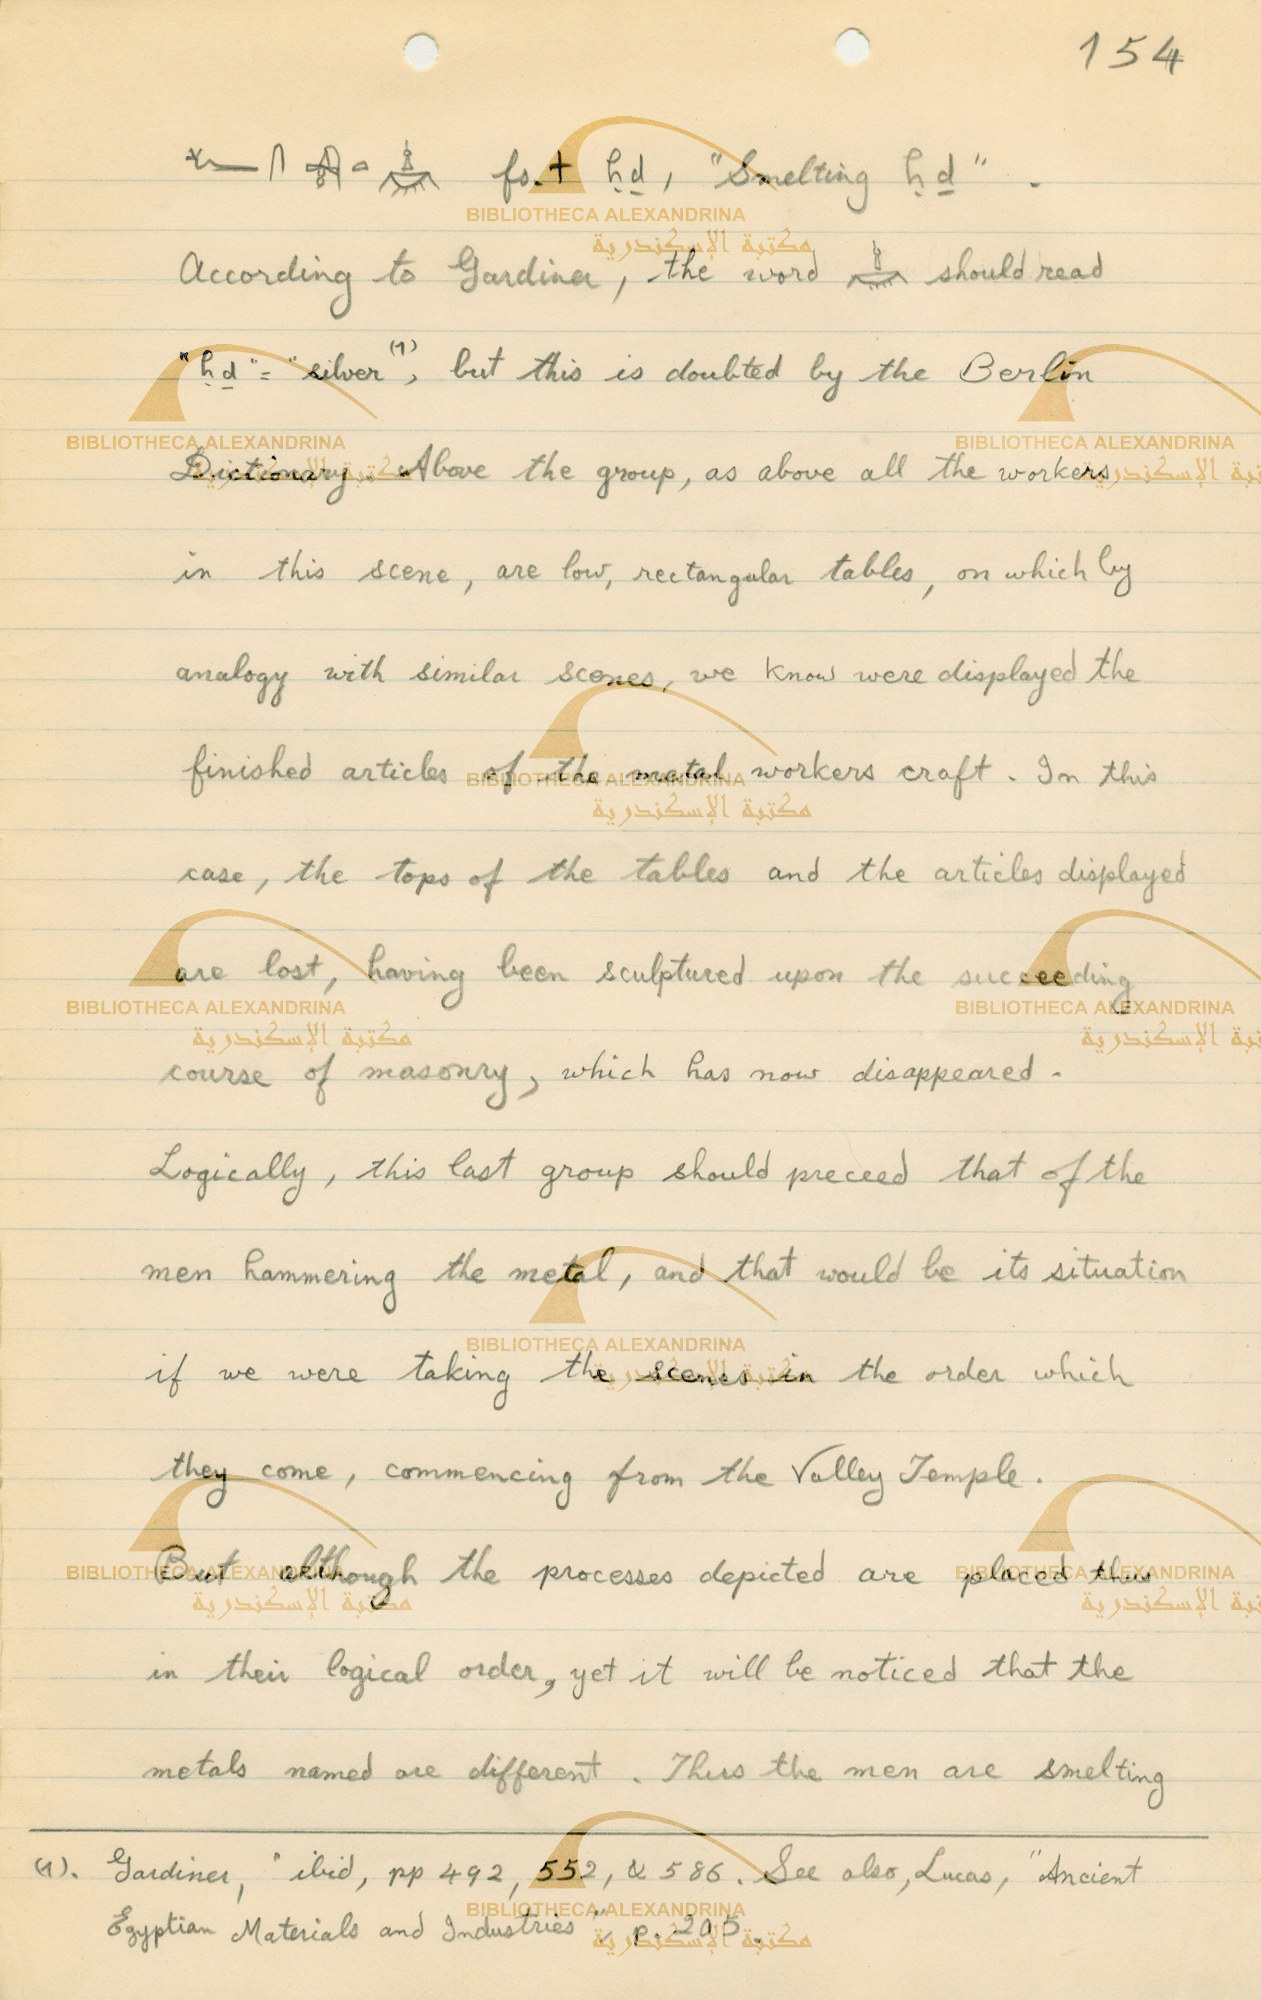 154
fs.t ḥḏ, "Smelting ḥḏ".
According to Gardiner, the word should read
"ḥḏ" = "silver"(1), but this is doubted by the Berlin
Dictionary. Above the group, as above all the workers
in this scene, are low, rectangular tables, on which by
analogy with similar scenes, we know were displayed the
finished articles of the metal workers craft. In this
case, the tops of the tables and the articles displayed
are lost, having been sculptured upon the succeeding
course of masonry, which has now disappeared.
Logically, this last group should preceed that of the
men hammering the metal, and that would be its situation
if we were taking the scenes in the order which
they come, commencing from the Valley Temple.
But although the processes depicted are placed thus
in their logical order, yet it will be noticed that the
metals named are different. Thus the men are smelting
(1). Gardiner, "ibid, pp 492, 552, & 586. See also, Lucas, "Ancient
Egyptian Materials and Industries", p. 205.
BIBLIOTHECA ALEXANDRINA
مكتبة الإسكندرية